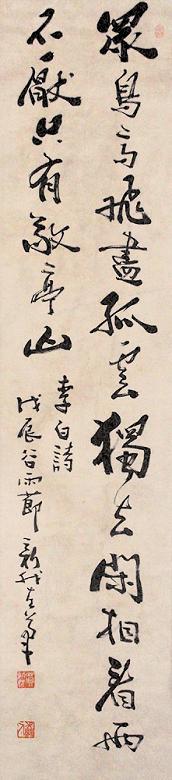 眾鳥高飛盡孤雲獨去閑相看兩
不厭只有敬亭山
李白詩
戊辰谷雨節 新我左筆